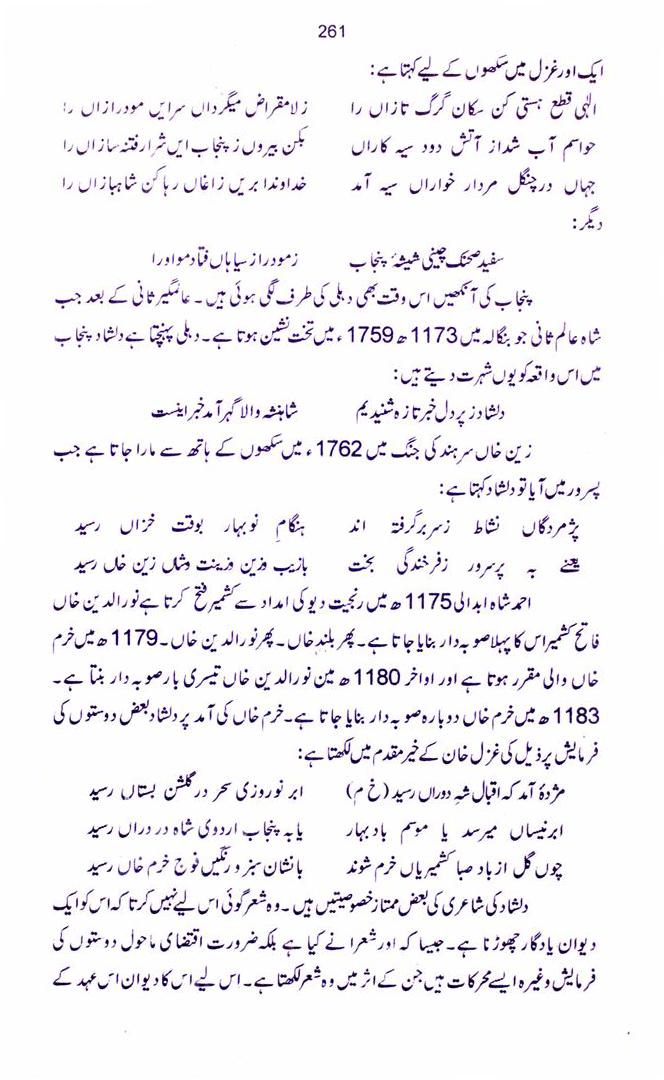 261
ایک اور غزل میں سکھوں کے لیے کہتا ہے:
الٰہی قطع ہستی کن سکان گرگ تازاں را زلا مقراض میگرداں سرایں مودرازاں را
حواسم آب شداز آتش دود سیہ کاراں بکن بیروں ز پنجاب ایں شرار فتنہ سازاں را
جہاں درچنگل مردار خواراں سیہ آمد خداوندا بریں زاغاں رہا کن شاہبازاں را
دیگر:
سفید صحنک چینی شیشۂ پنجاب زمودراز سیاہاں فتادمو اورا
پنجاب کی آنکھیں اس وقت بھی دہلی کی طرف لگی ہوئی ہیں۔ عالمگیر ثانی کے بعد جب
شاہ عالم ثانی جو بنگالہ میں 1173ھ 1759ء میں تخت نشین ہوتا ہے۔ دہلی پہنچتا ہے دلشاد پنجاب
میں اس واقعہ کو یوں شہرت دیتے ہیں:
دلشاد ز پر دل خبر تازہ شنیدیم شاہنشہ والا گہر آمد خبر اینست
زین خاں سرہند کی جنگ میں 1762ء میں سکھوں کے ہاتھ سے مارا جاتا ہے جب
پسرور میں آیا تو دلشاد کہتا ہے:
پژمردگاں نشاط زسربرگرفتہ اند ہنگامِ نوبہار بوقت خزاں رسید
یعنے بہ پرسرور زفرخندگی بخت بازیب وزین وزینت وشاں زین خاں رسید
احمد شاہ ابدالی 1175ھ میں رنجیت دیو کی امداد سے کشمیر فتح کرتا ہے نورالدین خاں
فاتح کشمیر اس کا پہلا صوبہ دار بنایا جاتا ہے۔ پھر بلند خاں۔ پھر نورالدین خاں۔ 1179ھ میں خرم
خاں والی مقرر ہوتا ہے اور اواخر 1180ھ مین نورالدین خاں تیسری بار صوبہ دار بنتا ہے۔
1183ھ میں خرم خاں دوبارہ صوبہ دار بنایا جاتا ہے۔ خرم خاں کی آمد پر دلشاد بعض دوستوں کی
فرمایش پر ذیل کی غزل خان کے خیر مقدم میں لکھتا ہے:
مژدۂ آمد کہ اقبال شہ دوراں رسید (خ م) ابر نوروزی سحر درگلشن بستاں رسید
ابرنیساں میرسد یا موسم بادبہار یابہ پنجاب اردوی شاہ در دراں رسید
چوں گل از باد صبا کشمیریاں خرم شوند بانشان سبز و رنگیں فوج خرم خاں رسید
دلشاد کی شاعری کی بعض ممتاز خصوصیتیں ہیں۔ وہ شعر گوئی اس لیے نہیں کرتا کہ اس کو ایک
دیوان یادگار چھوڑنا ہے۔ جیسا کہ اور شعرا نے کیا ہے بلکہ ضرورت اقتضای ماحول دوستوں کی
فرمایش وغیرہ ایسے محرکات ہیں جن کے اثر میں وہ شعر لکھتا ہے۔ اس لیے اس کا دیوان اس عہد کے